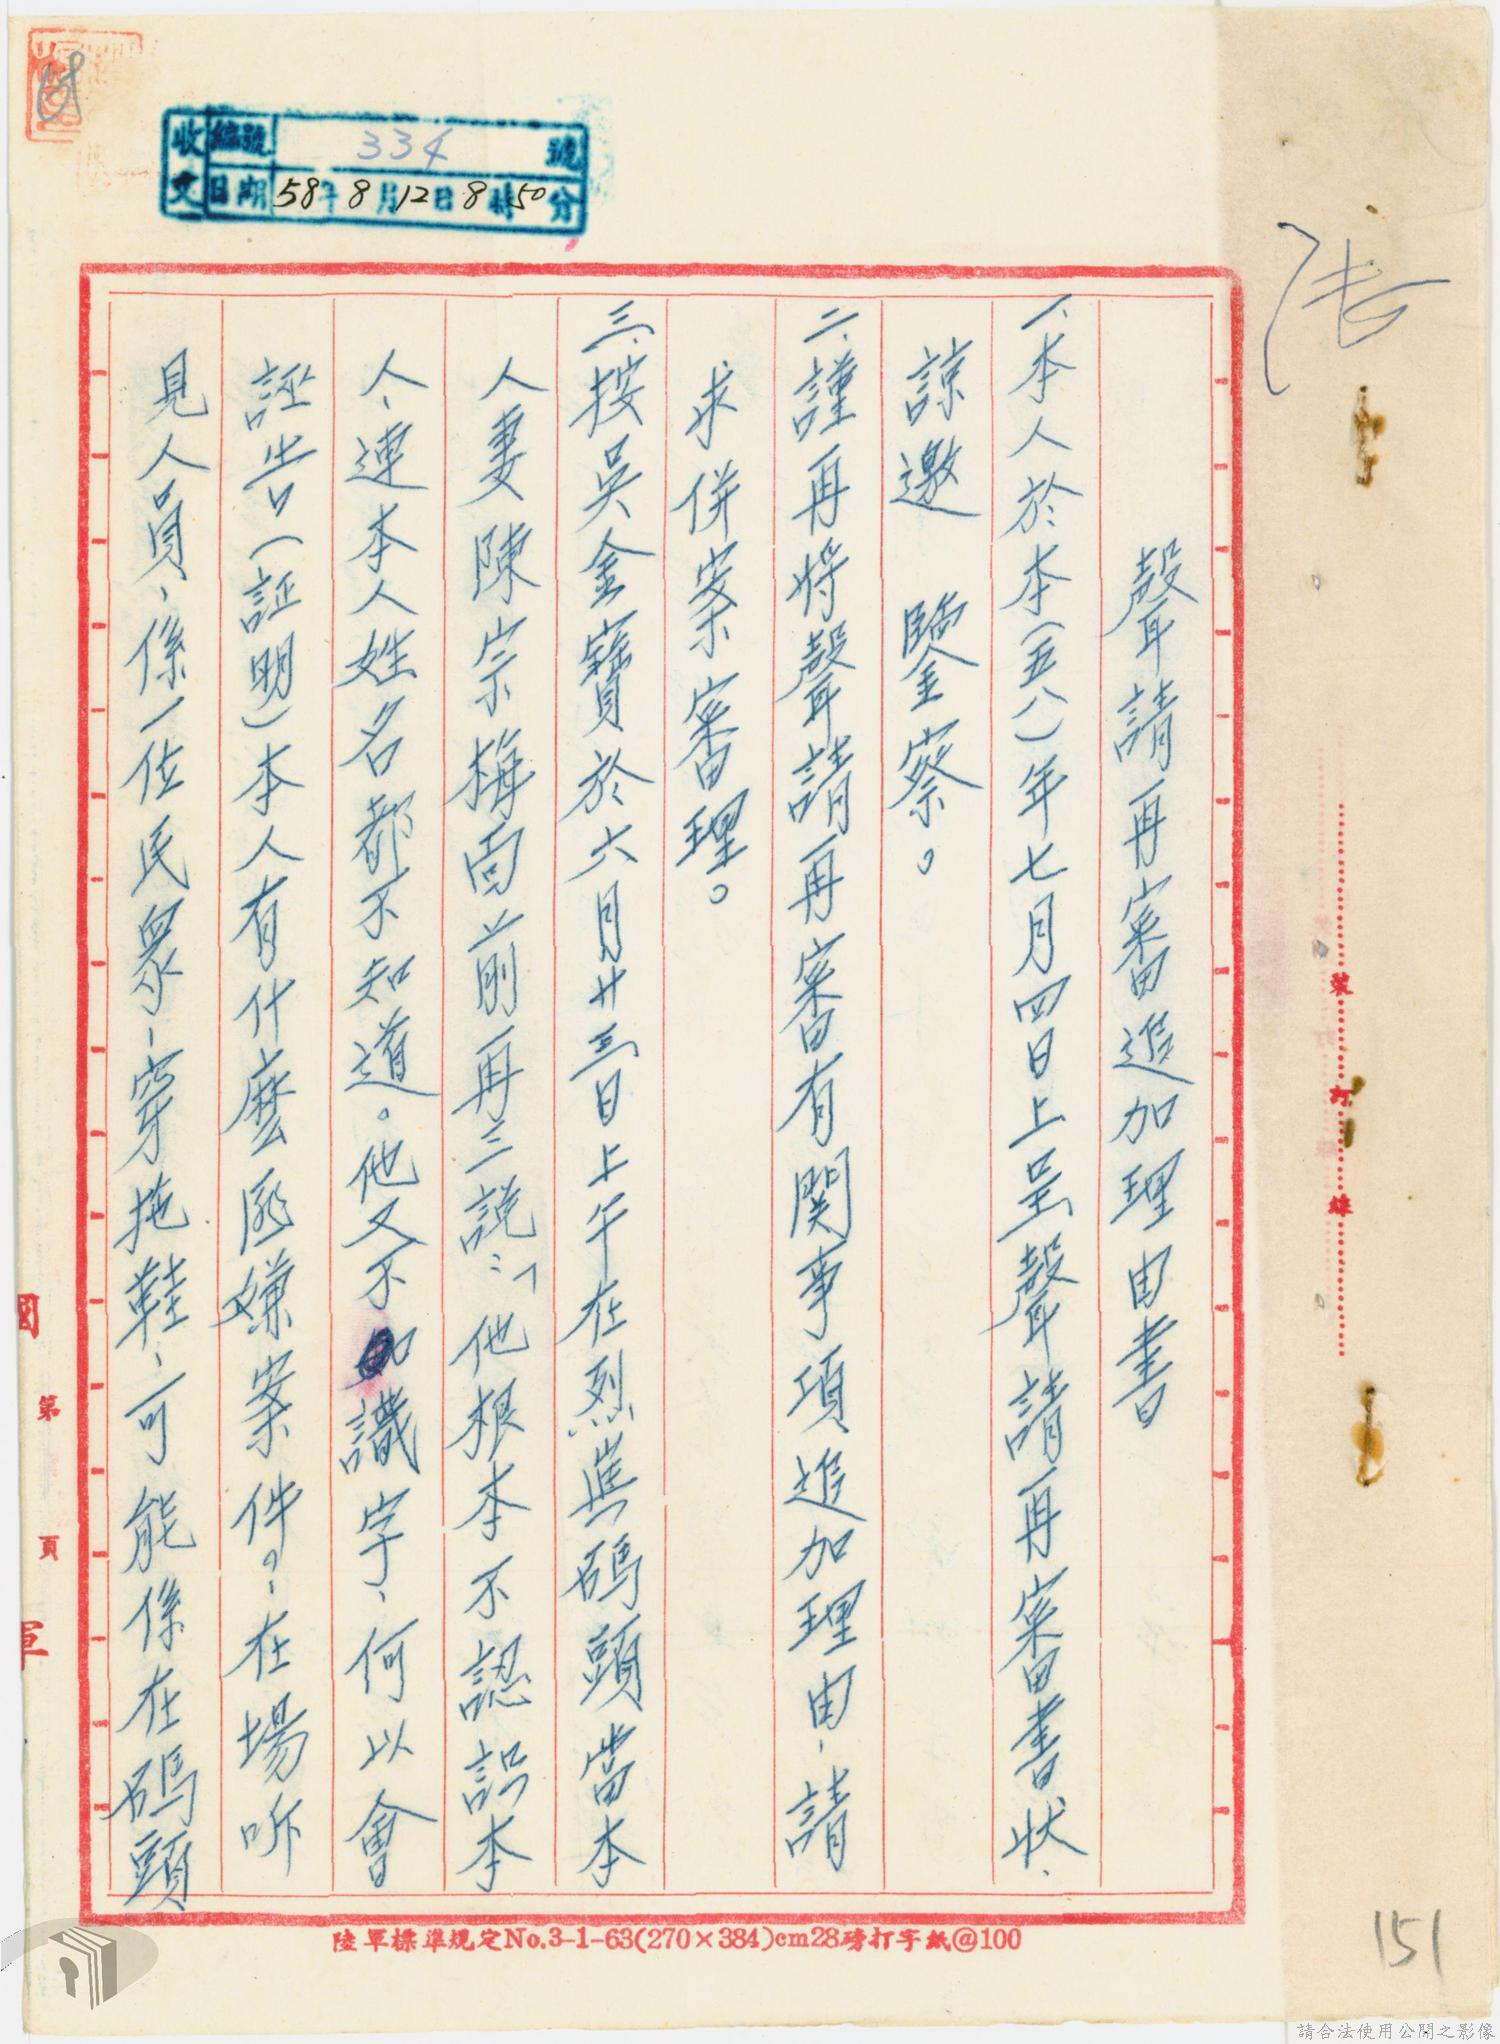 收文
編號 334 號
日期 58年8月12日8時50分
聲請再審追加理由書
一、本人於本(五八)年七月四日上呈聲請再審書狀、
諒邀 鑒察。
二、謹再將聲請再審有関事項追加理由、請
求併案審理。
三、按吳金寶於六月廿三日上午在烈嶼碼頭當本
人妻陳宗梅面前再三說:「他根本不認識本
人、連本人姓名都不知道。他又不識字、何以會
誣告(証明)本人有什麼匪嫌案件?、在場听
見人員、係一位民眾、穿拖鞋、可能係在碼頭
裝 訂 線
國
第 頁
軍
陸軍標準規定No.3-1-63(270×384)cm28磅打字紙@100
151
請合法使用公開之影像